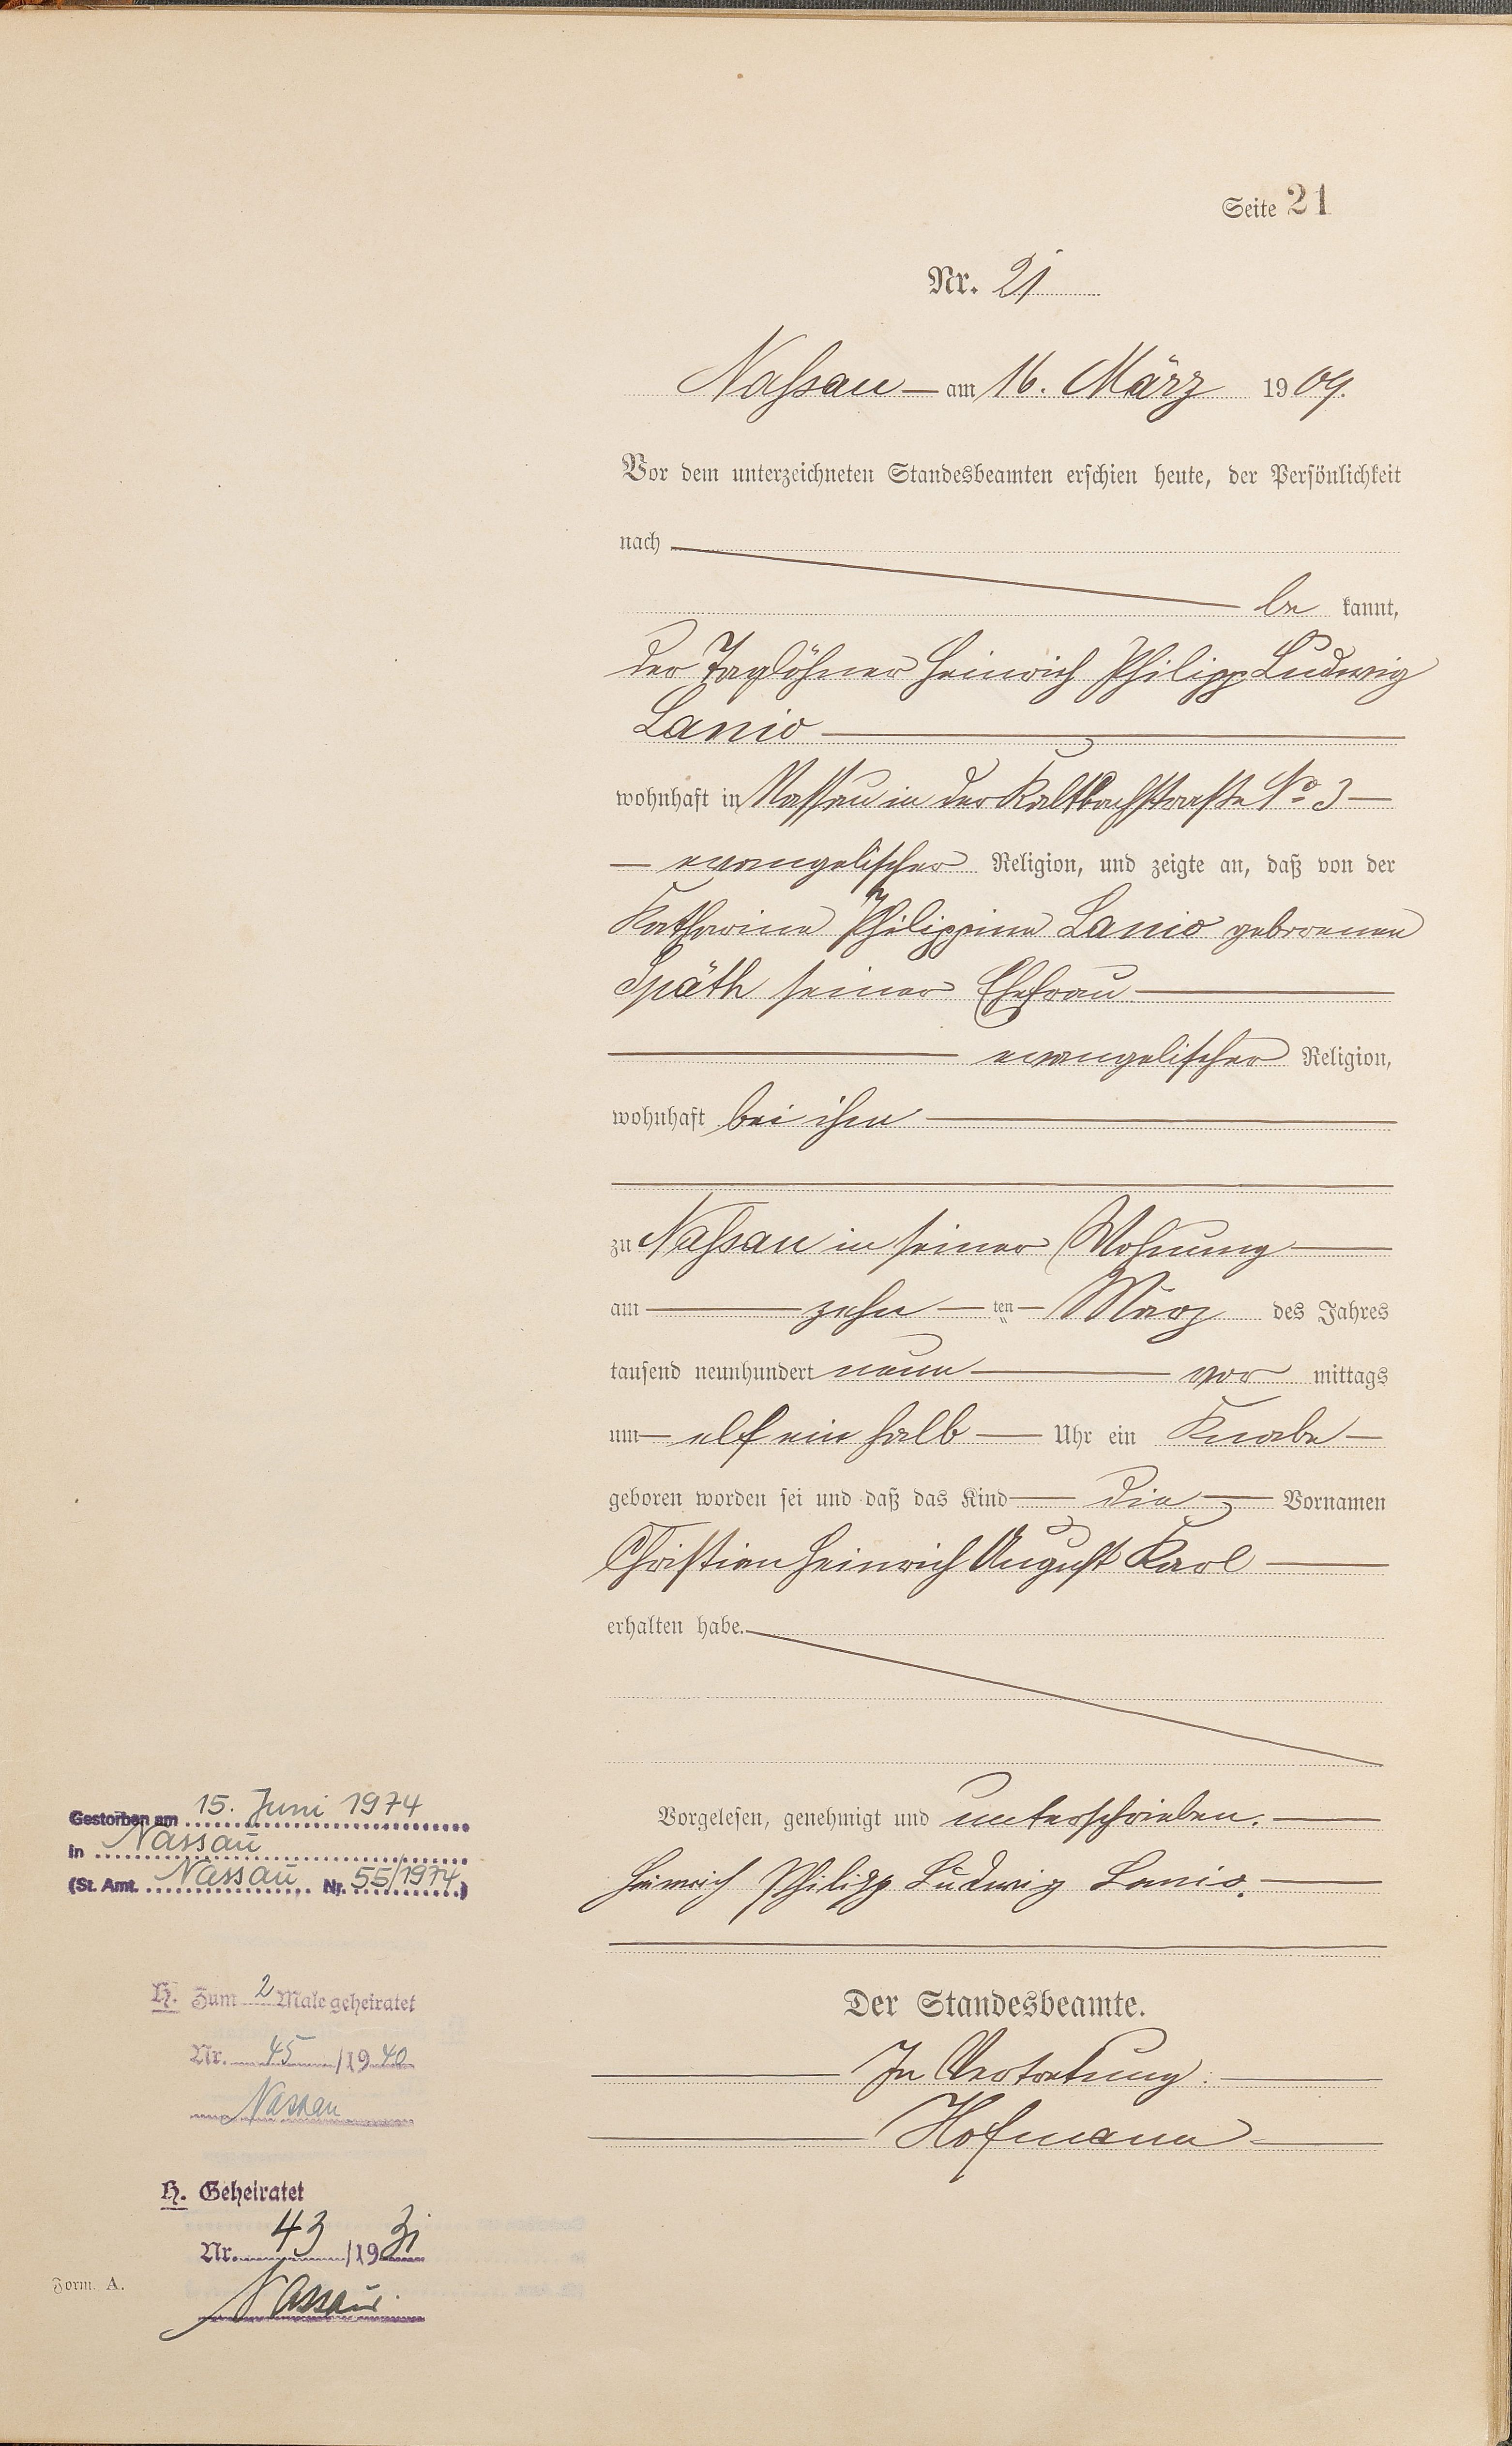 Seite 21
Nr. 21
Nassau — am 16. März 1909.
Vor dem unterzeichneten Standesbeamten erschien heute, der Persönlichkeit
nach
be kannt,
der Taglöhner Heinrich Philipp Ludwig
Lanio
wohnhaft in Nassau in der Kaltbachstraße No 3
evangelischer Religion, und zeigte an, daß von der
Katharina Philippina Lanio geborenen
Späth seiner Ehefrau
evangelischer Religion,
wohnhaft bei ihm
zu Nassau in seiner Wohnung
am zehn ten März des Jahres
tausend neunhundert neun vor mittags
um elf ein halb Uhr ein Knabe
geboren worden sei und daß das Kind die Vornamen
Christian Heinrich August Karl
erhalten habe.
Vorgelesen, genehmigt und unterschrieben.
Heinrich Philipp Ludwig Lanio.
Der Standesbeamte.
In Vertretung.
Hofmann
Gestorben am 15. Juni 1974
in Nassau
(St. Amt. Nassau Nr. 55/1974)
H. Zum 2 Male geheiratet
Nr. 45/1940
Nassau
H. Geheiratet
Nr. 43/1931
Nassau.
Form. A.